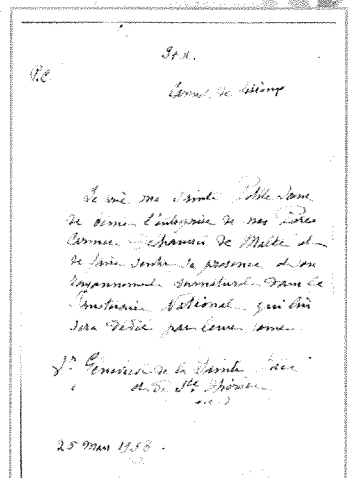 J + M
P.C.
Carmel de Lisieux
Je prie ma Sainte Petite Sœur
de bénir l'entreprise de nos Pères
Carmes Déchaussés de Malte et
de faire sentir sa présence et son
rayonnement surnaturel dans le
Sanctuaire National qui lui
sera dédié par leurs soins.
Sr Geneviève de la Sainte Face
et de Ste Thérèse
25 Mars 1958.